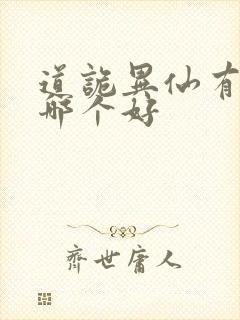 道詭異仙有
哪个好
齊世庸人